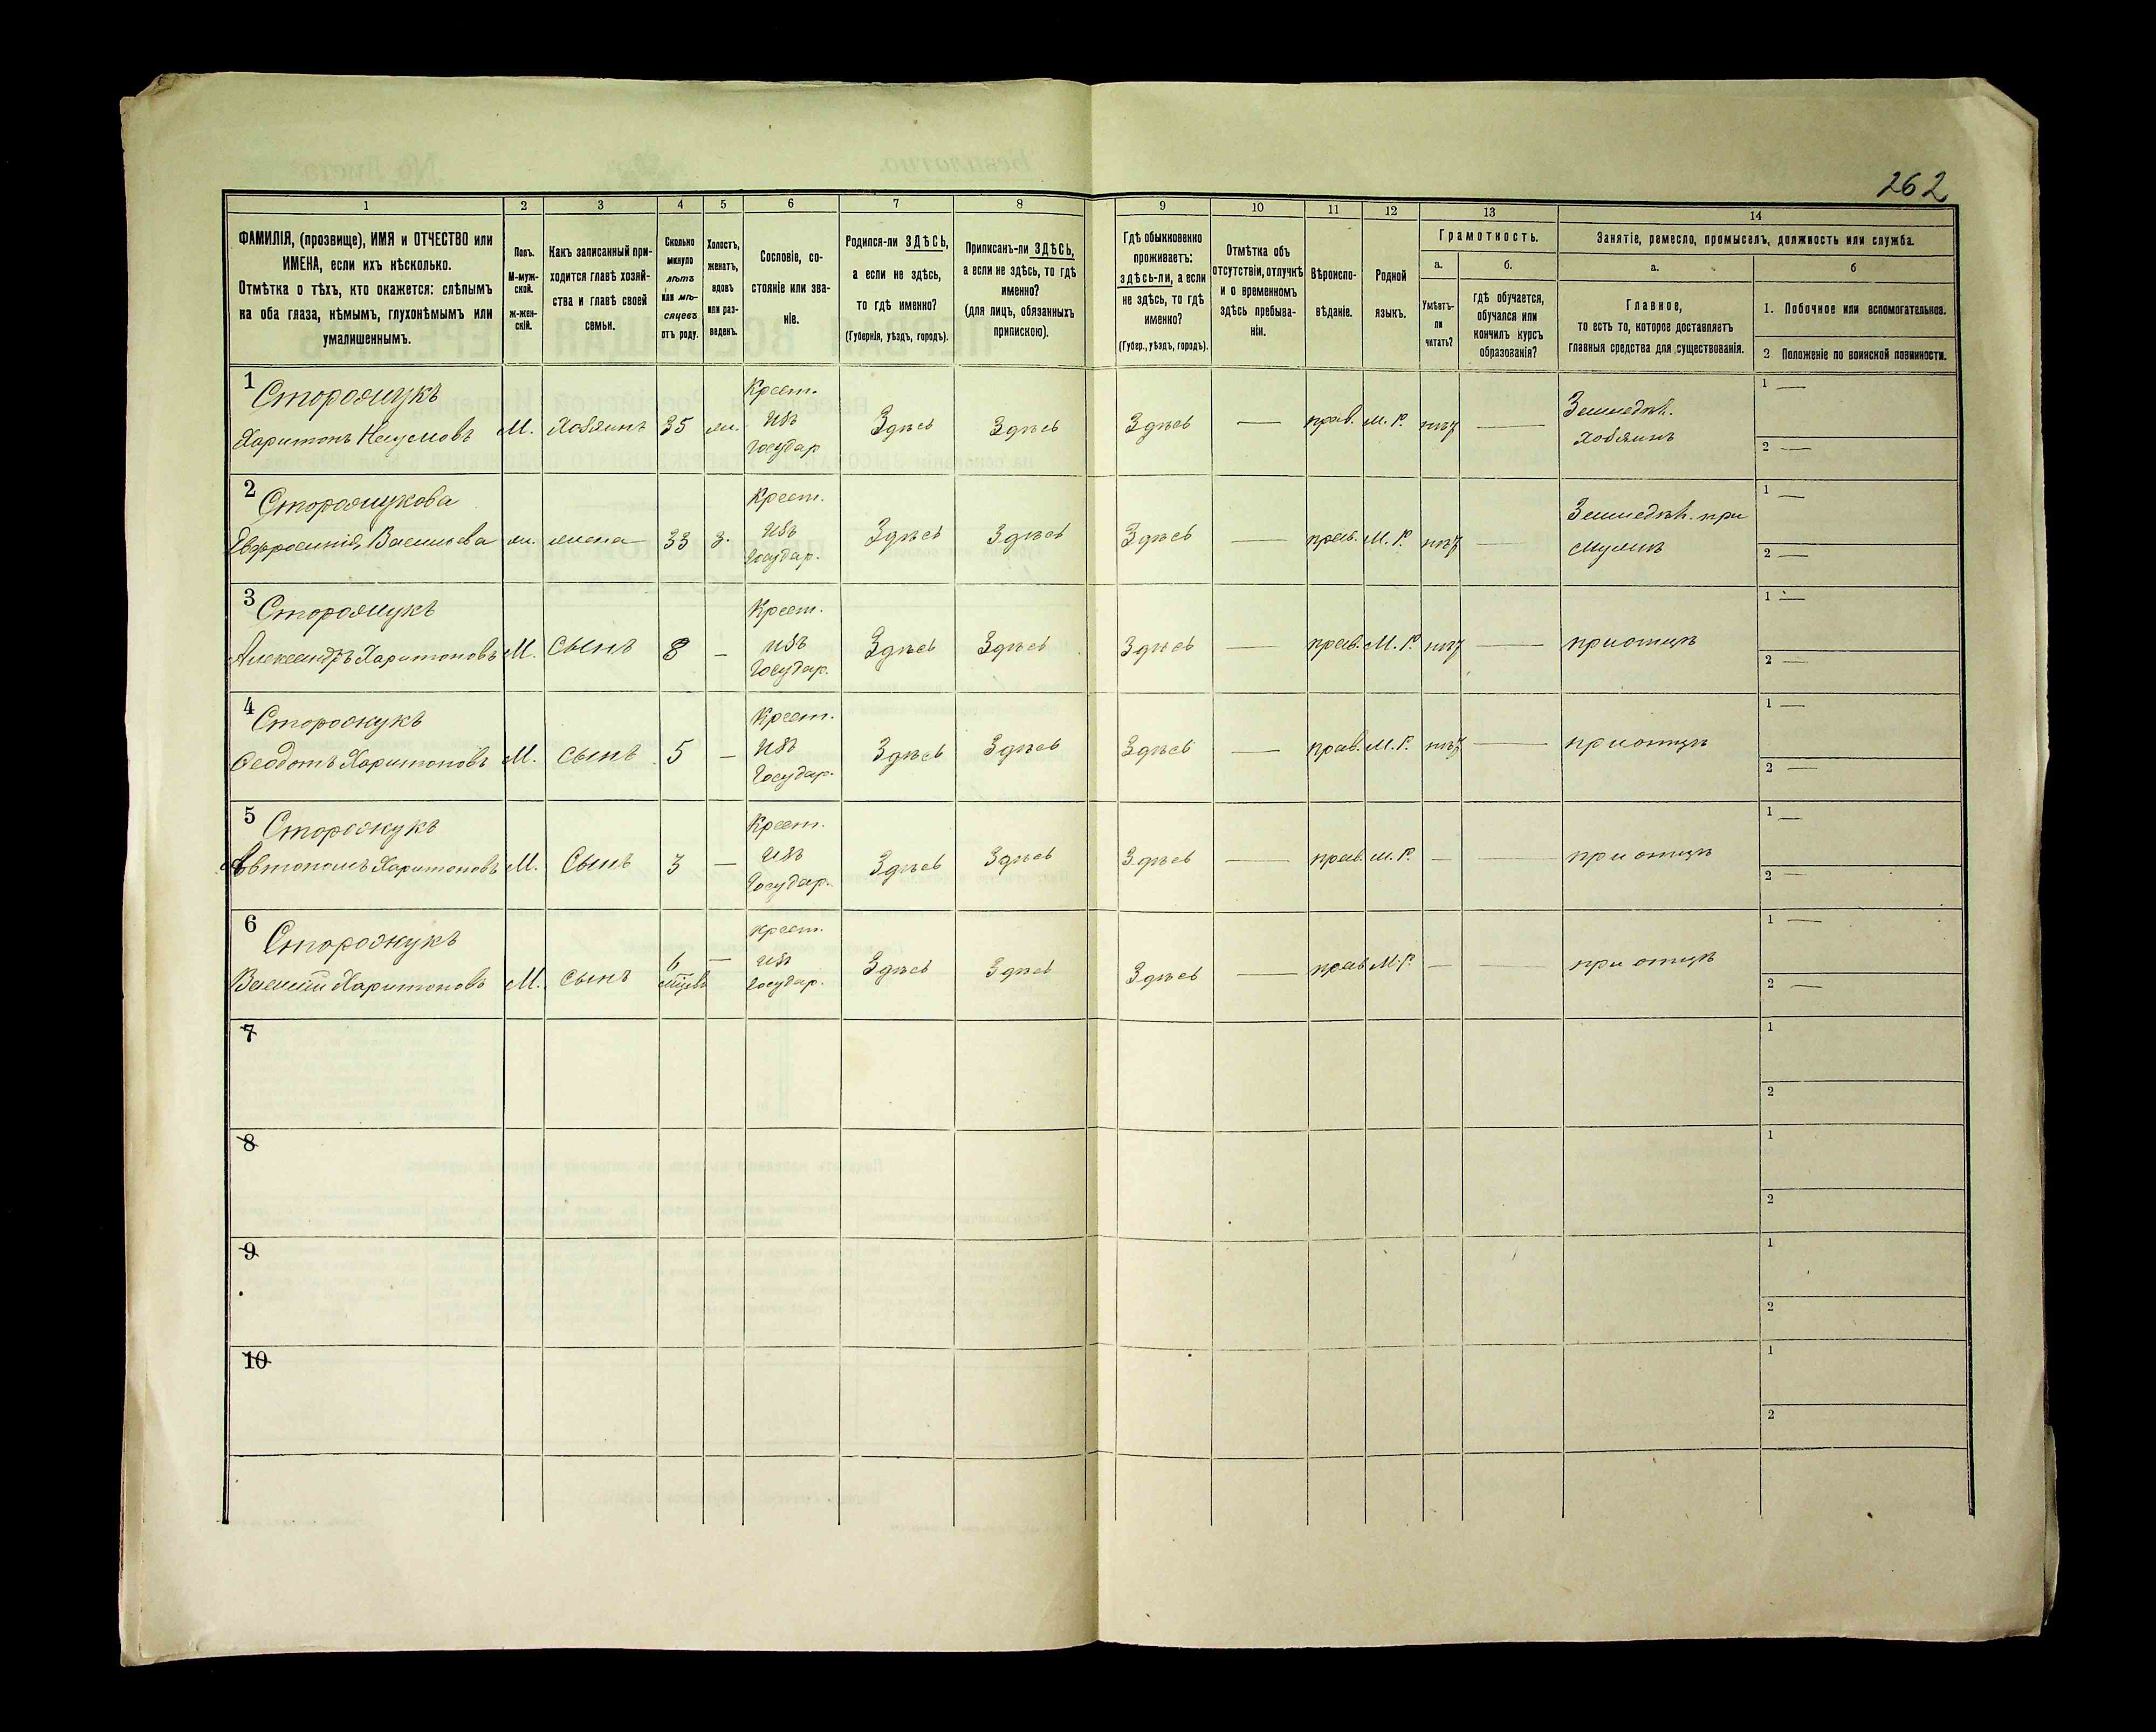 262
1 2 3 4 5 6 7 8 9 10 11 12 13 14
ФАМИЛІЯ, (прозвище), ИМЯ и ОТЧЕСТВО или
ИМЕНА, если ихъ нѣсколько.
Отмѣтка о тѣхъ, кто окажется: слѣпымъ
на оба глаза, нѣмымъ, глухонѣмымъ или
умалишеннымъ.
Полъ.
М-муж-
ской.
ж-жен-
скій.
Какъ записанный при-
ходится главѣ хозяй-
ства и главѣ своей
семьи.
Сколько
минуло
лѣтъ
или мѣ-
сяцевъ
отъ роду.
Холостъ,
женатъ,
вдовъ
или раз-
веденъ.
Сословіе, со-
стояніе или зва-
ніе.
Родился-ли ЗДѢСЬ,
а если не здѣсь,
то гдѣ именно?
(Губернія, уѣздъ, городъ).
Приписанъ-ли ЗДѢСЬ,
а если не здѣсь, то гдѣ
именно?
(для лицъ, обязанныхъ
припискою).
Гдѣ обыкновенно
проживаетъ:
здѣсь-ли, а если
не здѣсь, то гдѣ
именно?
(Губер., уѣздъ, городъ).
Отмѣтка объ
отсутствіи, отлучкѣ
и о временномъ
здѣсь пребыва-
ніи.
Вѣроиспо-
вѣданіе.
Родной
языкъ.
Грамотность.
а.
Умѣетъ-
ли
читать?
б.
гдѣ обучается,
обучался или
кончилъ курсъ
образованія?
Занятіе, ремесло, промыселъ, должность или служба.
а.
Главное,
то есть то, которое доставляетъ
главныя средства для существованія.
б
1. Побочное или вспомогательное.
2 Положеніе по воинской повинности.
1 Сторожукъ Крест. 1 —
Харитонъ Наумовъ М. Хозяинъ 35 ж. изъ Здѣсь Здѣсь Здѣсь — прав. М. Р. нѣтъ — Земледѣл.
Государ хозяинъ 2 —
2 Сторожукова Крест. 1 —
Евфросинія Васильева ж. жена 33 з. изъ Здѣсь Здѣсь Здѣсь — прав. М. Р. нѣтъ — Земледѣл. при
Государ. мужѣ 2 —
3 Сторожукъ Крест. 1 —
Александръ Харитоновъ М. Сынъ 8 — изъ Здѣсь Здѣсь Здѣсь — прав. М. Р. нѣтъ — при отцѣ
Государ. 2 —
4 Сторожукъ Крест. 1 —
Ѳеодотъ Харитоновъ М. Сынъ 5 — изъ Здѣсь Здѣсь Здѣсь — прав. М. Р. нѣтъ — при отцѣ
Государ. 2 —
5 Сторожукъ Крест. 1 —
Автономъ Харитоновъ М. Сынъ 3 — изъ Здѣсь Здѣсь Здѣсь — прав. М. Р. — — при отцѣ
Государ. 2 —
6 Сторожукъ Крест. 1 —
Василій Харитоновъ М. Сынъ 6 — изъ Здѣсь Здѣсь Здѣсь — прав М. Р. — — при отцѣ
Государ. 2 —
7 1
2
8 1
2
9 1
2
10 1
2